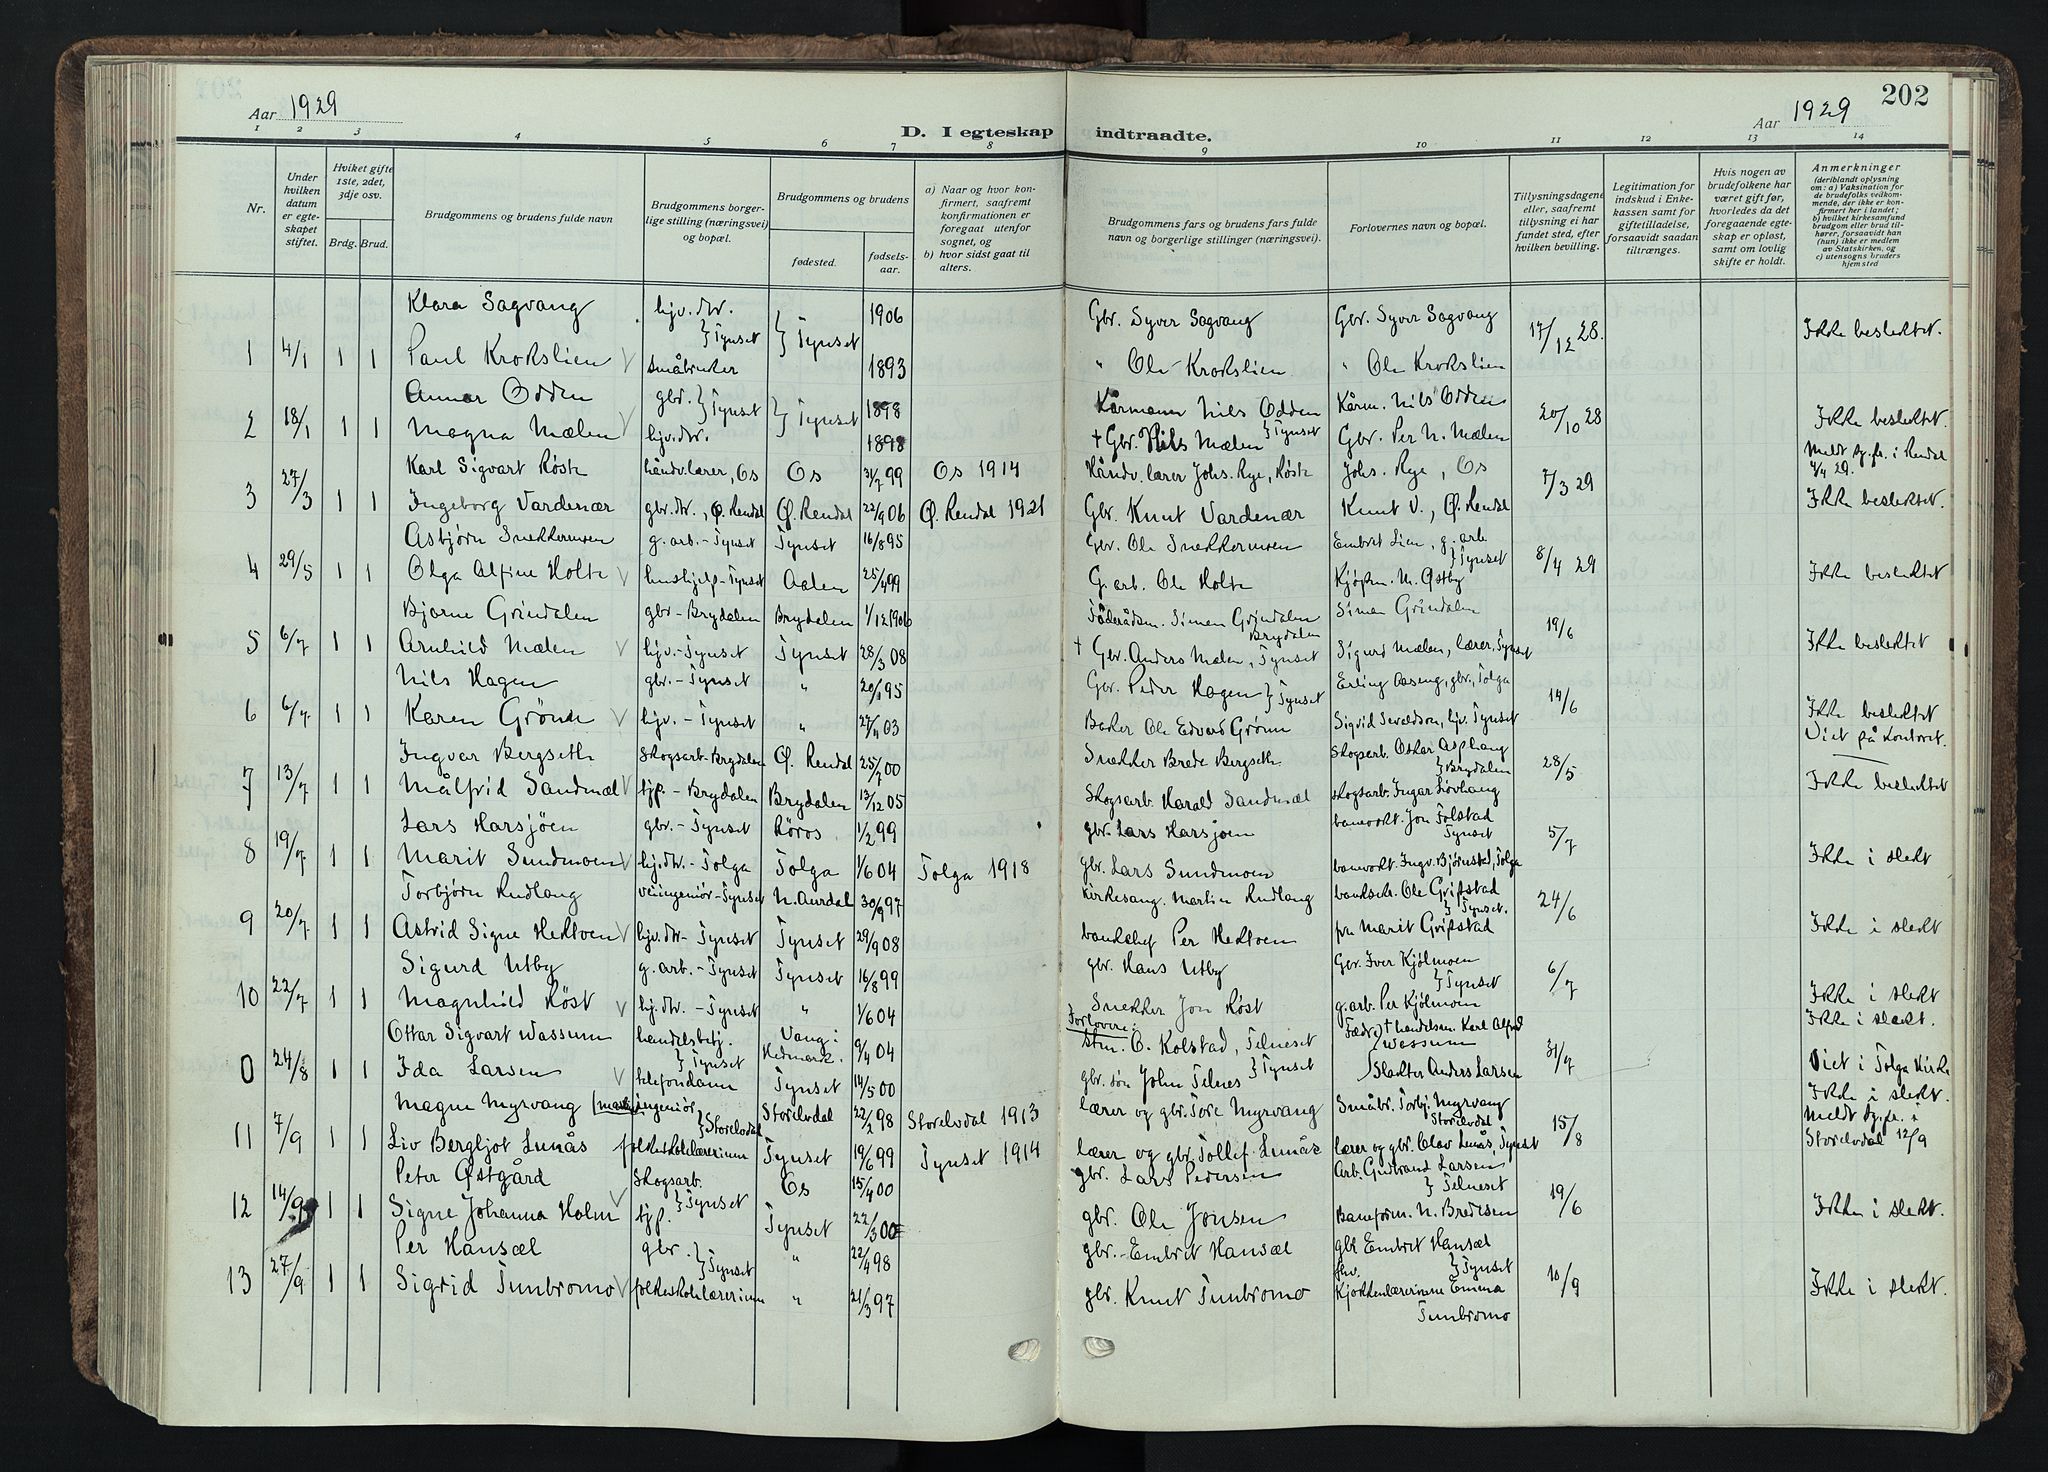 202
Aar 1929
Aar 1929
D. I egteskap indtraadte.
1 2 3 4 5 6 7 8 9 10 11 12 13 14
Nr.
Under hvilken datum er egteskapet stiftet.
Hviket gifte 1ste, 2det, 3dje osv.
Brdg. Brud.
Brudgommens og brudens fulde navn
Brudgommens borgerlige stilling (næringsvei) og bopæl.
Brudgommens og brudens
fødested.
fødselsaar.
a) Naar og hvor konfirmert, saafremt konfirmationen er foregaaet utenfor sognet, og
b) hvor sidst gaat til alters.
Brudgommens fars og brudens fars fulde navn og borgerlige stillinger (næringsvei).
Forlovernes navn og bopæl.
Tillysningsdagene eller, saafremt tillysning ei har fundet sted, efter hvilken bevilling.
Legitimation for indskud i Enkekassen samt for giftetilladelse, forsaavidt saadan tiltrænges.
Hvis nogen av brudefolkene har været gift før, hvorledes da det foregaaende egteskap er opløst, samt om lovlig skifte er holdt.
Anmerkninger
(deriblandt oplysning om: a) Vaksination for de brudefolks vedkommende, der ikke er konfirmert her i landet;
b) hvilket kirkesamfund brudgom eller brud tilhører, forsaavidt han (hun) ikke er medlem av Statskirken, og
c) utensogns bruders hjemsted
Klara Sagvang hjv. dtr. } Tynset } Tynset 1906 Gbr. Syver Sagvang Gbr. Syver Sagvang 17/12 28. Ikke beslektet.
1 4/1 1 1 Paul Krokslien småbruker 1893 " Ole Krokslien " Ole Krokslien
Annar Odden gbr. } Tynset } Tynset 1898 Kårmann Nils Odden } Tynset Kårm. Nils Odden 20/10 28 Ikke beslektet.
2 18/1 1 1 Magna Mælen hjv. dtr. 1898 + Gbr. Nils Mælen Gbr. Per N. Mælen
Karl Sigvart Røste håndv. lærer, Os Os 31/7 99 Os 1914 Håndv. lærer Johs. Rye, Røste Johs. Rye, Os 7/3 29 Meldt sg.pr. i Rendal 4/4 29.
3 27/3 1 1 Ingeborg Vardenær gbr. dtr., Ø. Rendal Ø. Rendal 22/9 06 Ø. Rendal 1921 Gbr. Knut Vardenær Knut V., Ø. Rendal Ikke beslektet.
Asbjørn Snekkermoen g. arb. - Tynset Tynset 16/8 95 Gbr. Ole Snekkermoen Embret Lien, g. arb } Tynset 8/4 29
4 29/5 1 1 Olga Alfine Holte hushjelp - Tynset Aalen 25/4 99 G. arb. Ole Holte Kjøpm. M. Østby Ikke beslektet
Bjarne Grindalen gbr - Brydalen Brydalen 1/12 1906 Føderådsm. Simen Grindalen Brydalen Simen Grindalen 19/6
5 6/7 1 1 Arnhild Mælen hjv. - Tynset Tynset 28/3 08 + Gbr. Anders Mælen, Tynset Sigurd Mælen, lærer, Tynset Ikke beslektet
Nils Hagen gbr. - Tynset " 20/1 95 Gbr. Peder Hagen } Tynset Erling Aaseng, gbr., Tolga 14/6
6 6/7 1 1 Karen Grønn hjv. - Tynset " 27/4 03 Baker Ole Edvard Grønn Sigrid Sevaldson, hjv. Tynset Ikke beslektet
Viet på kontoret.
Ingvar Bergseth Skogsarb - Brydalen Ø. Rendal 25/7 00 Snekker Brede Bergseth Skogsarb. Oskar Asphaug } Brydalen 28/5
7 13/7 1 1 Målfrid Sandmæl tjp. - Brydalen Brydalen 13/12 05 Skogsarb. Harald Sandmæl skogsarb. Ingar Løvhaug Ikke beslektet
Lars Harsjøen gbr. - Tynset Røros 1/2 99 gbr. Lars Harsjøen banevokt. Jon Folstad Tynset 5/7
8 19/7 1 1 Marit Sundmoen hj. dtr. - Tolga Tolga 1/6 04 Tolga 1918 gbr. Lars Sundmoen banevokt. Ingv. Bjørnstad, Tolga Ikke i slekt
Torbjørn Rudlang veiingeniør - Tynset N. Aurdal 30/9 97 Kirkesang. Martin Rudlang banksekr. Ole Gripstad } Tynset. 24/6
9 20/7 1 1 Astrid Signe Hektoen hjv. dtr - Tynset Tynset 29/9 08 banksjef Per Hektoen fru Marit Gripstad Ikke i slekt
Sigurd Utby g. arb. - Tynset Tynset 16/8 99 gbr. Hans Utby Gbr. Iver Kjølmoen } Tynset 6/7
10 22/7 1 1 Magnhild Røst hj. dtr. - Tynset " 1/6 04 Snekker Jon Røst g. arb. Per Kjølmoen Ikke i slekt
Ottar Sigvart Wassum handelsbetj. } Tynset Vang i Hedmark. 9/4 04 Forlovere: Stm. O. Kolstad, Telneset Fædre + handelsm. Karl Alfred Wassum 31/7 Ikke i slekt.
0 24/8 1 1 Ida Larsen telefondame Tynset 14/5 00 gbr. søn John Telnes } Tynset Slakter Anders Larsen Viet i Tolga kirke
Magne Myrvang ingeniør } Storelvdal Storelvdal 22/2 98 Storelvdal 1913 lærer og gbr. Tore Myrvang Småbr. Torbj. Myrvang Storelvdal 15/8 Ikke i slekt.
Meldt sg.pr. i Storelvdal 12/9
11 7/9 1 1 Liv Bergljot Lunås folkeskolelærerinne Tynset 19/6 99 Tynset 1914 lærer og gbr. Tollef Lunås lærer og gbr. Olav Lunås, Tynset
Peter Østgård Skogsarb. } Tynset Os 15/4 00 gbr. Lars Pedersen Arb. Gudbrand Larsen } Telneset 19/6
12 14/9 1 1 Signe Johanna Holm tjp. Tynset 22/3 00 gbr. Ole Jonsen Baneform. N. Bredesen Ikke i slekt.
Per Hansæl gbr. } Tynset " 22/4 98 gbr. - Embret Hansæl gbr Embret Hansæl } Tynset 10/9
13 27/9 1 1 Sigrid Tunbromo folkeskolelærerinne " 21/3 97 gbr. Knut Tunbromo Kjøkkenlærerinne Emma Tunbromo Ikke i slekt.